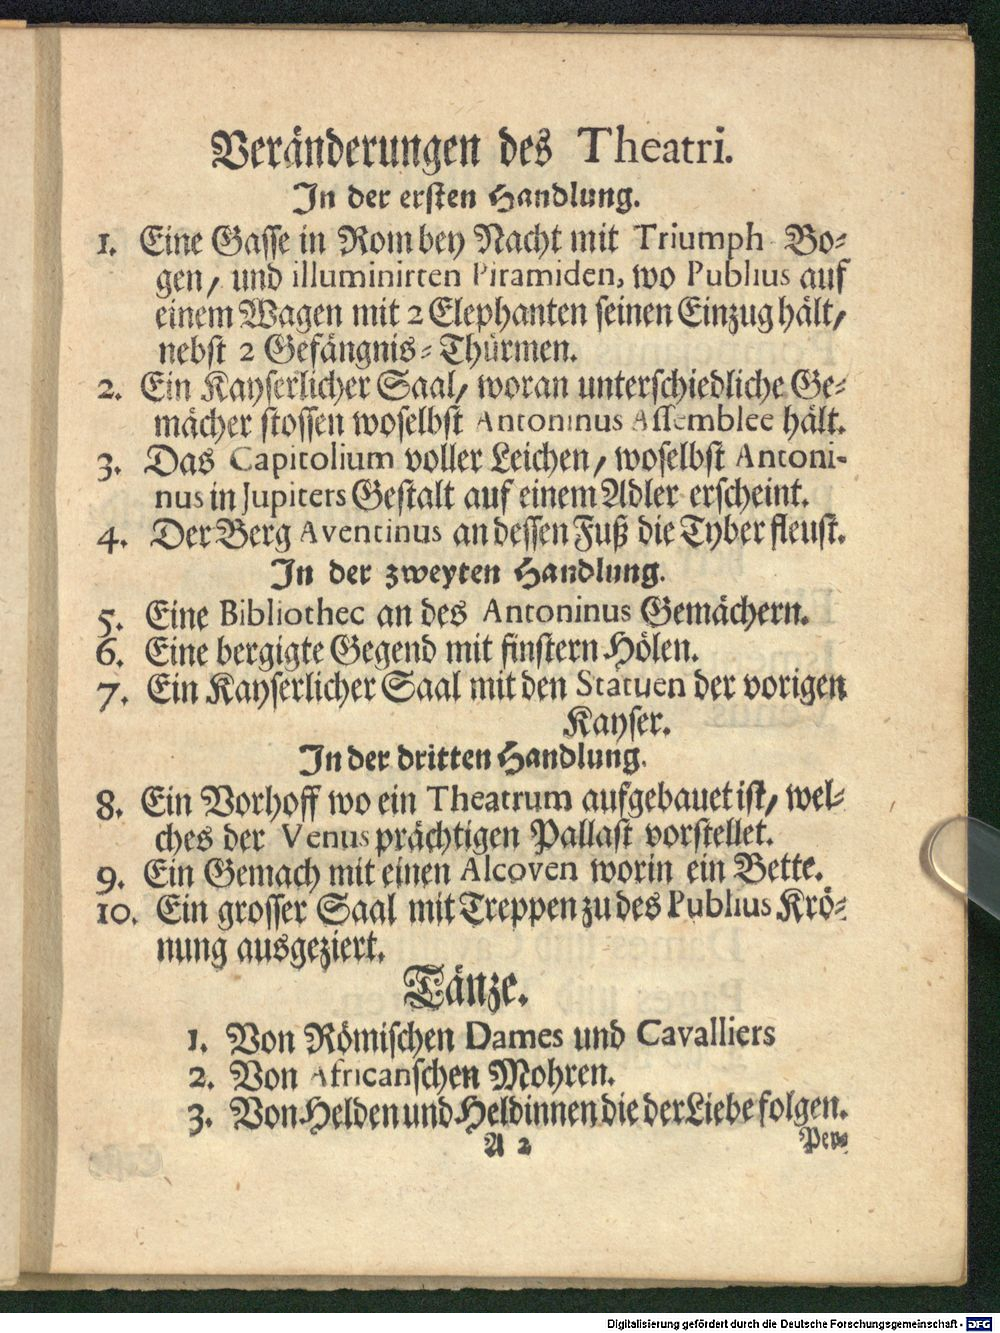 Veränderungen des Theatri.
In der ersten Handlung.
1. Eine Gasse in Rom bey Nacht mit Triumph Bo-
gen, und illuminirten Piramiden, wo Publius auf
einem Wagen mit 2 Elephanten seinen Einzug hält,
nebst 2 Gefängnis-Thürmen.
2. Ein Kayserlicher Saal, woran unterschiedliche Ge-
mächer stossen woselbst Antoninus Assemblee hält.
3. Das Capitolium voller Leichen, woselbst Antoni-
nus in Jupiters Gestalt auf einem Adler erscheint.
4. Der Berg Aventinus an dessen Fuß die Tyber fleust.
In der zweyten Handlung.
5. Eine Bibliothec an des Antoninus Gemächern.
6. Eine bergigte Gegend mit finstern Hölen.
7. Ein Kayserlicher Saal mit den Statuen der vorigen
Kayser.
In der dritten Handlung.
8. Ein Vorhoff wo ein Theatrum aufgebauet ist, wel-
ches der Venus prächtigen Pallast vorstellet.
9. Ein Gemach mit einen Alcoven worin ein Bette.
10. Ein grosser Saal mit Treppen zu des Publius Krö-
nung ausgeziert.
Tänze.
1. Von Römischen Dames und Cavalliers
2. Von Africanschen Mohren.
3. Von Helden und Heldinnen die der Liebe folgen.
A 2 Per-
Digitalisierung gefördert durch die Deutsche Forschungsgemeinschaft - DFG